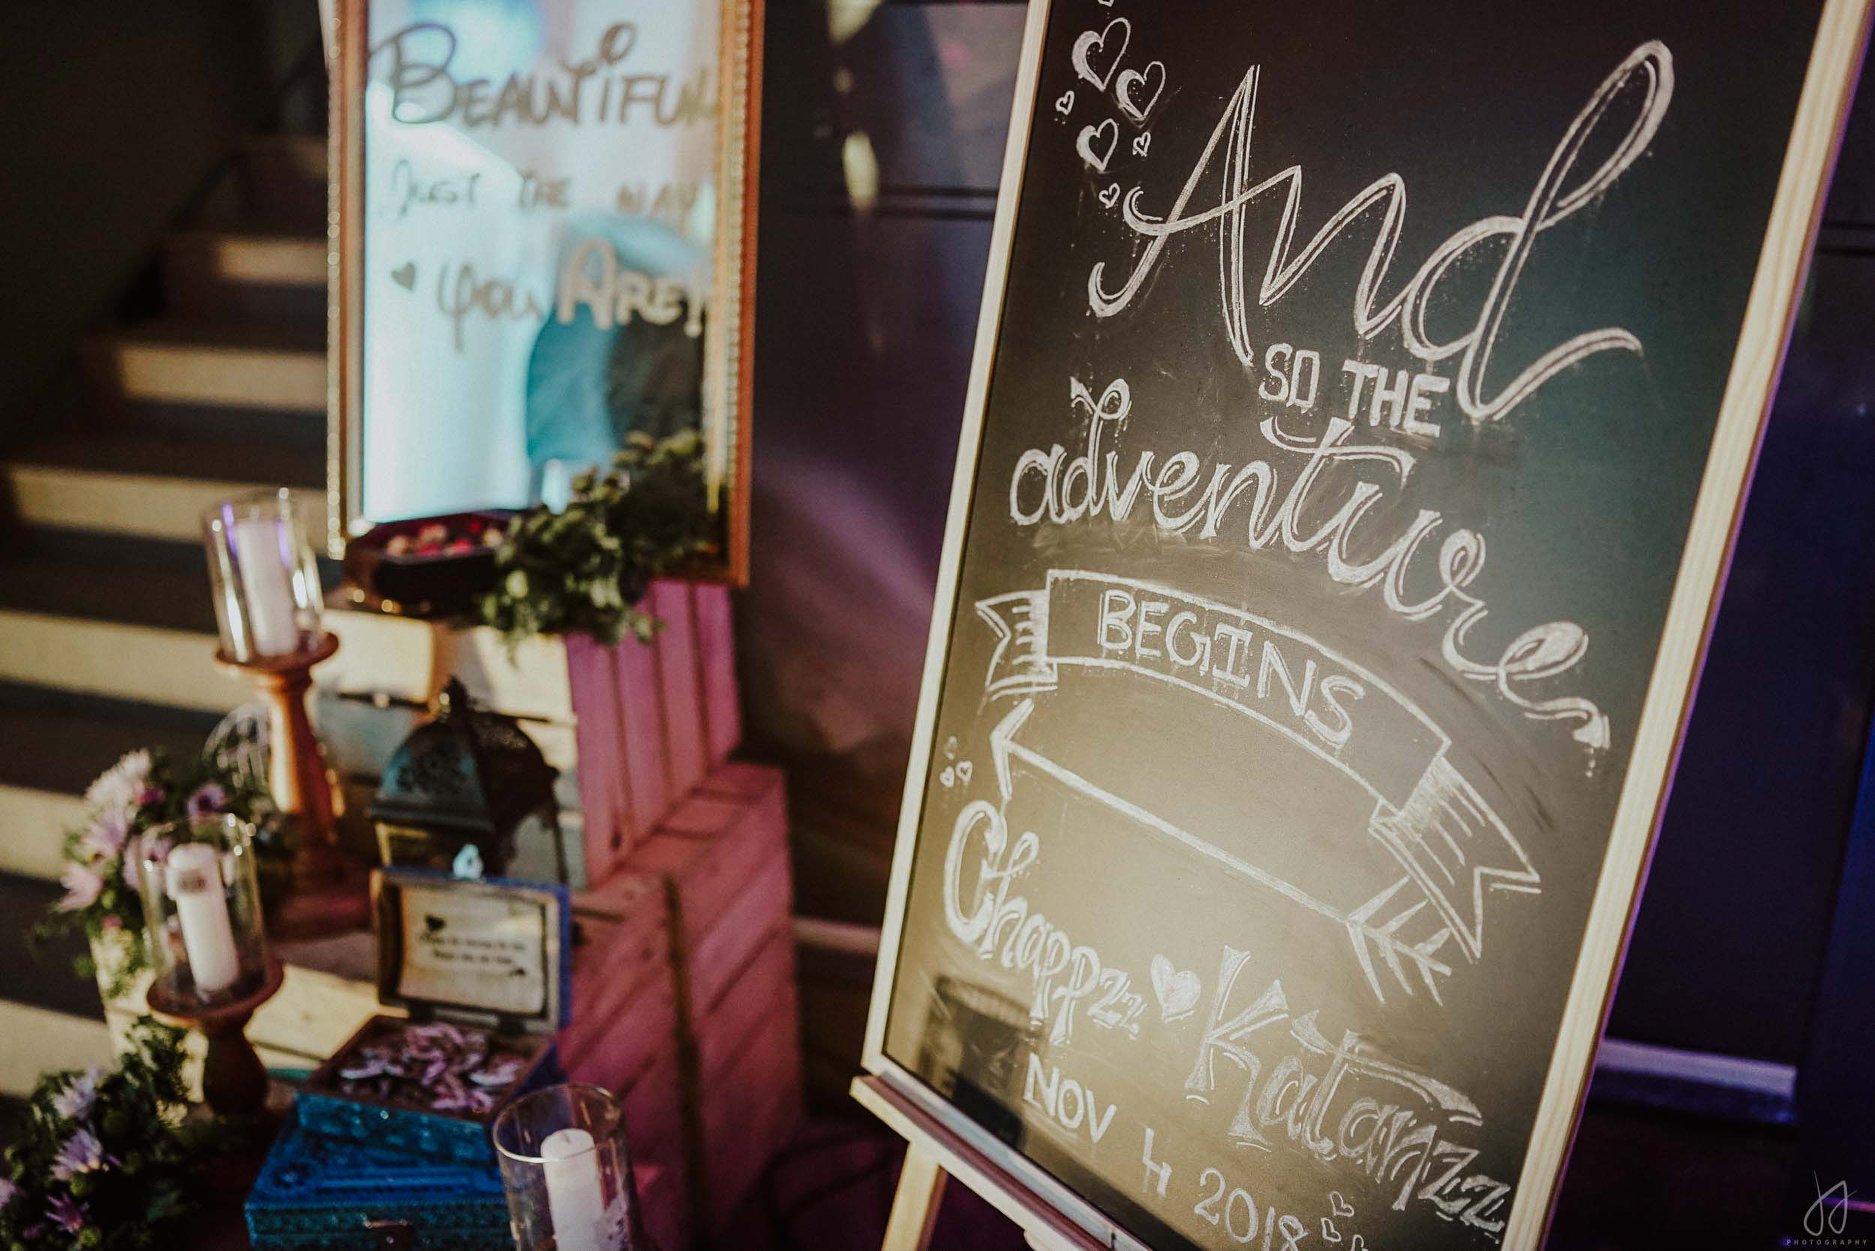 BEAUTIFUL
JUST THE WAY
you ARE!
And
SO THE
adventure
BEGINS
Chappzz Katanzz
NOV 4 2018
PHOTOGRAPHY